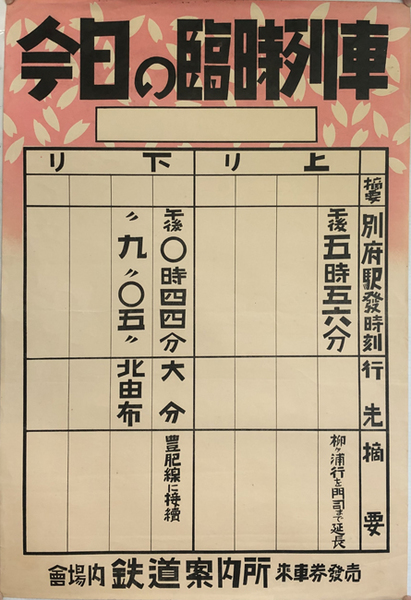 今日の臨時列車
上り
下り
摘要
別府駅發時刻
行先
摘要
午後五時五六分
柳ヶ浦行を門司まで延長
午後〇時四四分
大分
豊肥線に接續
〃九〃〇五〃
北由布
會場内 鉄道案内所 乘車券發売